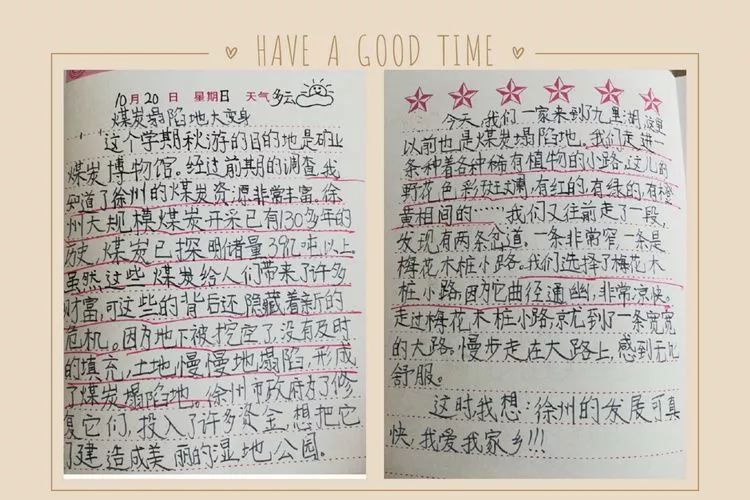 HAVE A GOOD TIME
10月20日 星期日 天气 多云
煤炭塌陷地大变身
这个学期秋游的目的地是矿业
煤炭博物馆。经过前期的调查我
知道了徐州的煤炭资源非常丰富。徐
州大规模煤炭开采已有130多年的
历史,煤炭已探明储量39亿吨以上。
虽然这些煤炭给人们带来了许多
财富,可这些的背后还隐藏着新的
危机。因为地下被挖空了,没有及时
的填充,土地慢慢地塌陷,形成
了煤炭塌陷地。徐州市政府为了修
复它们,投入了许多资金,想把它
们建造成美丽的湿地公园。
今天,我们一家来到九里湖,这里
以前也是煤炭塌陷地。我们走进一
条种着各种稀有植物的小路,这儿的
野花色彩斑斓,有红的,有绿的,有橙
黄相间的……我们又往前走了一段,
发现有两条岔道。一条非常窄,一条是
梅花木桩小路。我们选择了梅花木
桩小路,因为它曲径通幽,非常凉快。
走过梅花木桩小路,就到了一条宽宽
的大路,慢步走在大路上,感到无比
舒服。
这时我想:徐州的发展可真
快,我爱我家乡!!!